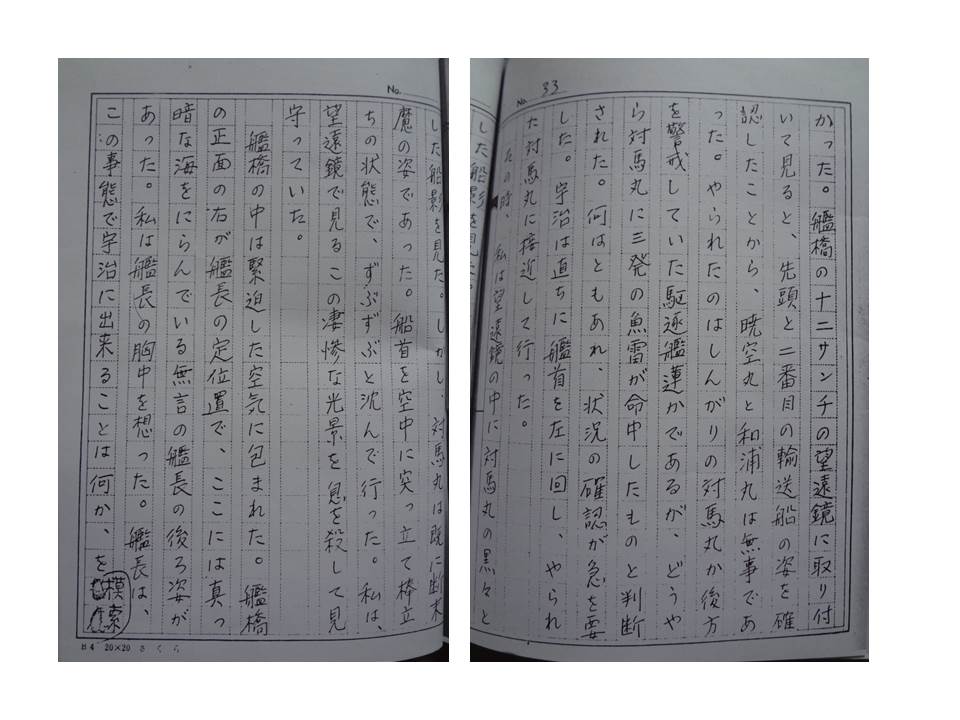 No. 33
かった。艦橋の十二サンチの望遠鏡に取り付
いて見ると、先頭と二番目の輸送船の姿を確
認したことから、暁空丸と和浦丸は無事であ
った。やられたのはしんがりの対馬丸か後方
を警戒していた駆逐艦蓮かであるが、どうや
ら対馬丸に三発の魚雷が命中したものと判断
された。何はともあれ、状況の確認が急を要
した。宇治は直ちに艦首を左に回し、やられ
た対馬丸に接近して行った。
その時、私は望遠鏡の中に対馬丸の黒々と
No.
した船影を見た。しかし、対馬丸は既に断末
魔の姿であった。船首を空中に突っ立て棒立
ちの状態で、ずぶずぶと沈んで行った。私は、
望遠鏡で見るこの凄惨な光景を息を殺して見
守っていた。
艦橋の中は緊迫した空気に包まれた。艦橋
の正面の右が艦長の定位置で、ここには真っ
暗な海をにらんでいる無言の艦長の後ろ姿が
あった。私は艦長の胸中を想った。艦長は、
この事態で宇治に出来ることは何か、を模索
B4 20×20 さくら